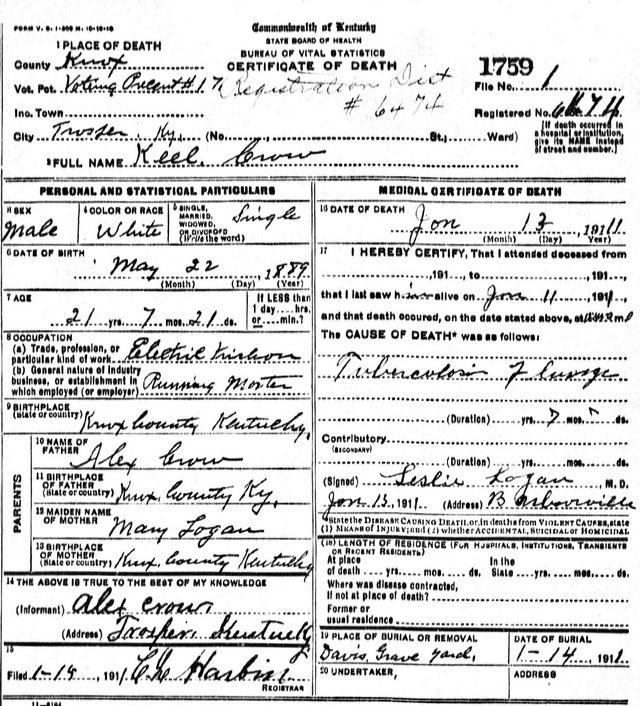 FORM V. S. 1-
Commonwealth of Kentucky
STATE BOARD OF HEALTH
BUREAU OF VITAL STATISTICS
CERTIFICATE OF DEATH
1 PLACE OF DEATH
County Knox
Vot. Pct. Voting Precent # 17
Registration Dist
# 6474
1759
File No. 1
Inc. Town
Registered No.
City Trosper, Ky. (No. St.; Ward)
(If death occurred in a hospital or institution, give its NAME instead of street and number.)
2 FULL NAME Keel Crow
PERSONAL AND STATISTICAL PARTICULARS
3 SEX Male
4 COLOR OR RACE White
5 SINGLE, MARRIED, WIDOWED, OR DIVORCED (Write the word) Single
6 DATE OF BIRTH May 22, 1889
(Month) (Day) (Year)
7 AGE 21 yrs. 7 mos. 21 ds.
If LESS than 1 day.... hrs. or.... min.?
8 OCCUPATION
(a) Trade, profession, or particular kind of work Electric
(b) General nature of industry business, or establishment in which employed (or employer) Running Moter
9 BIRTHPLACE (State or country) Knox County Kentucky,
PARENTS
10 NAME OF FATHER Alex Crow
11 BIRTHPLACE OF FATHER (State or country) Knox County Ky,
12 MAIDEN NAME OF MOTHER Mary Logan
13 BIRTHPLACE OF MOTHER (State or country) Knox County Kentucky
14 THE ABOVE IS TRUE TO THE BEST OF MY KNOWLEDGE
(Informant) Alex Crow
(Address) Trosper, Kentucky
15
Filed 1-19, 1911 Harbin
REGISTRAR
MEDICAL CERTIFICATE OF DEATH
16 DATE OF DEATH Jan 13, 1911
(Month) (Day) (Year)
17 I HEREBY CERTIFY, That I attended deceased from
, 191 , to , 191 ,
that I last saw him alive on Jan 11, 1911,
and that death occured, on the date stated above, at m.
The CAUSE OF DEATH* was as follows:
Tuberculosis of lungs
(Duration) yrs. 7 mos. ds.
Contributory
(SECONDARY)
(Duration) yrs. mos. ds.
(Signed) Leslie Logan M. D.
Jan 13, 1911 (Address) Barbourville
*State the DISEASE CAUSING DEATH, or, in deaths from VIOLENT CAUSES, state (1) MEANS OF INJURY; and (2) whether ACCIDENTAL, SUICIDAL OR HOMICIDAL
(18) LENGTH OF RESIDENCE (FOR HOSPITALS, INSTITUTIONS, TRANSIENTS OR RECENT RESIDENTS)
At place of death yrs. mos. ds. In the State yrs. mos. ds.
Where was disease contracted, If not at place of death?
Former or usual residence
19 PLACE OF BURIAL OR REMOVAL
Davis, Grave Yard,
DATE OF BURIAL
1-14, 1911
20 UNDERTAKER,
ADDRESS
11-6184